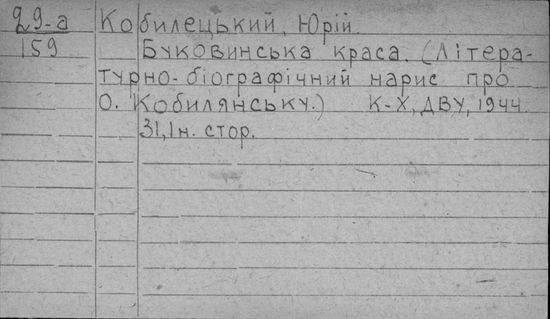 29-а Кобилецький, Юрій.
159 Буковинська краса. (Літера-
турно-біографічний нарис про
О. Кобилянську.) К-Х, ДВУ, 1944.
31, 1 н. стор.